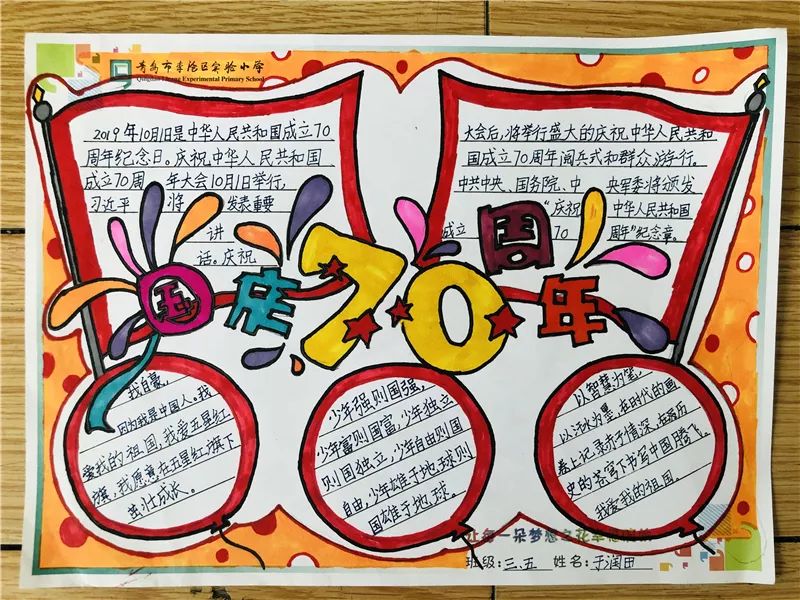 青岛市李沧区实验小学
Qingdao Licang Experimental Primary School
2019年10月1日是中华人民共和国成立70
周年纪念日。庆祝中华人民共和国
成立70周年大会10月1日举行,
习近平将发表重要
讲
话。庆祝
大会后,将举行盛大的庆祝中华人民共和
国成立70周年阅兵式和群众游行。
中共中央、国务院、中央军委将颁发
“庆祝中华人民共和国
成立70周年”纪念章。
国庆70周年
我自豪,
因为我是中国人。我
爱我的祖国,我爱五星红
旗,我愿意在五星红旗下
茁壮成长。
少年强则国强,
少年富则国富,少年独立
则国独立,少年自由则国
自由,少年雄于地球则
国雄于地球。
以智慧为笔,
以汗水为墨,在时代的画
卷上记录赤子情深,在历
史的苍穹下书写中国腾飞。
我爱我的祖国。
让每一朵梦想之花幸福绽放
班级:三、五 姓名:于润田